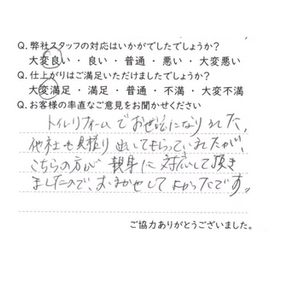 Q. 弊社スタッフの対応はいかがでしたでしょうか?
大変良い・良い・普通・悪い・大変悪い
Q. 仕上がりはご満足いただけましたでしょうか?
大変満足・満足・普通・不満・大変不満
Q. お客様の率直なご意見をお聞かせください
トイレリフォームでお世話になりました。
他社も見積り出してもらっていましたが、
こちらの方が親身に対応して頂き
ましたので、おまかせしてよかったです。
ご協力ありがとうございました。